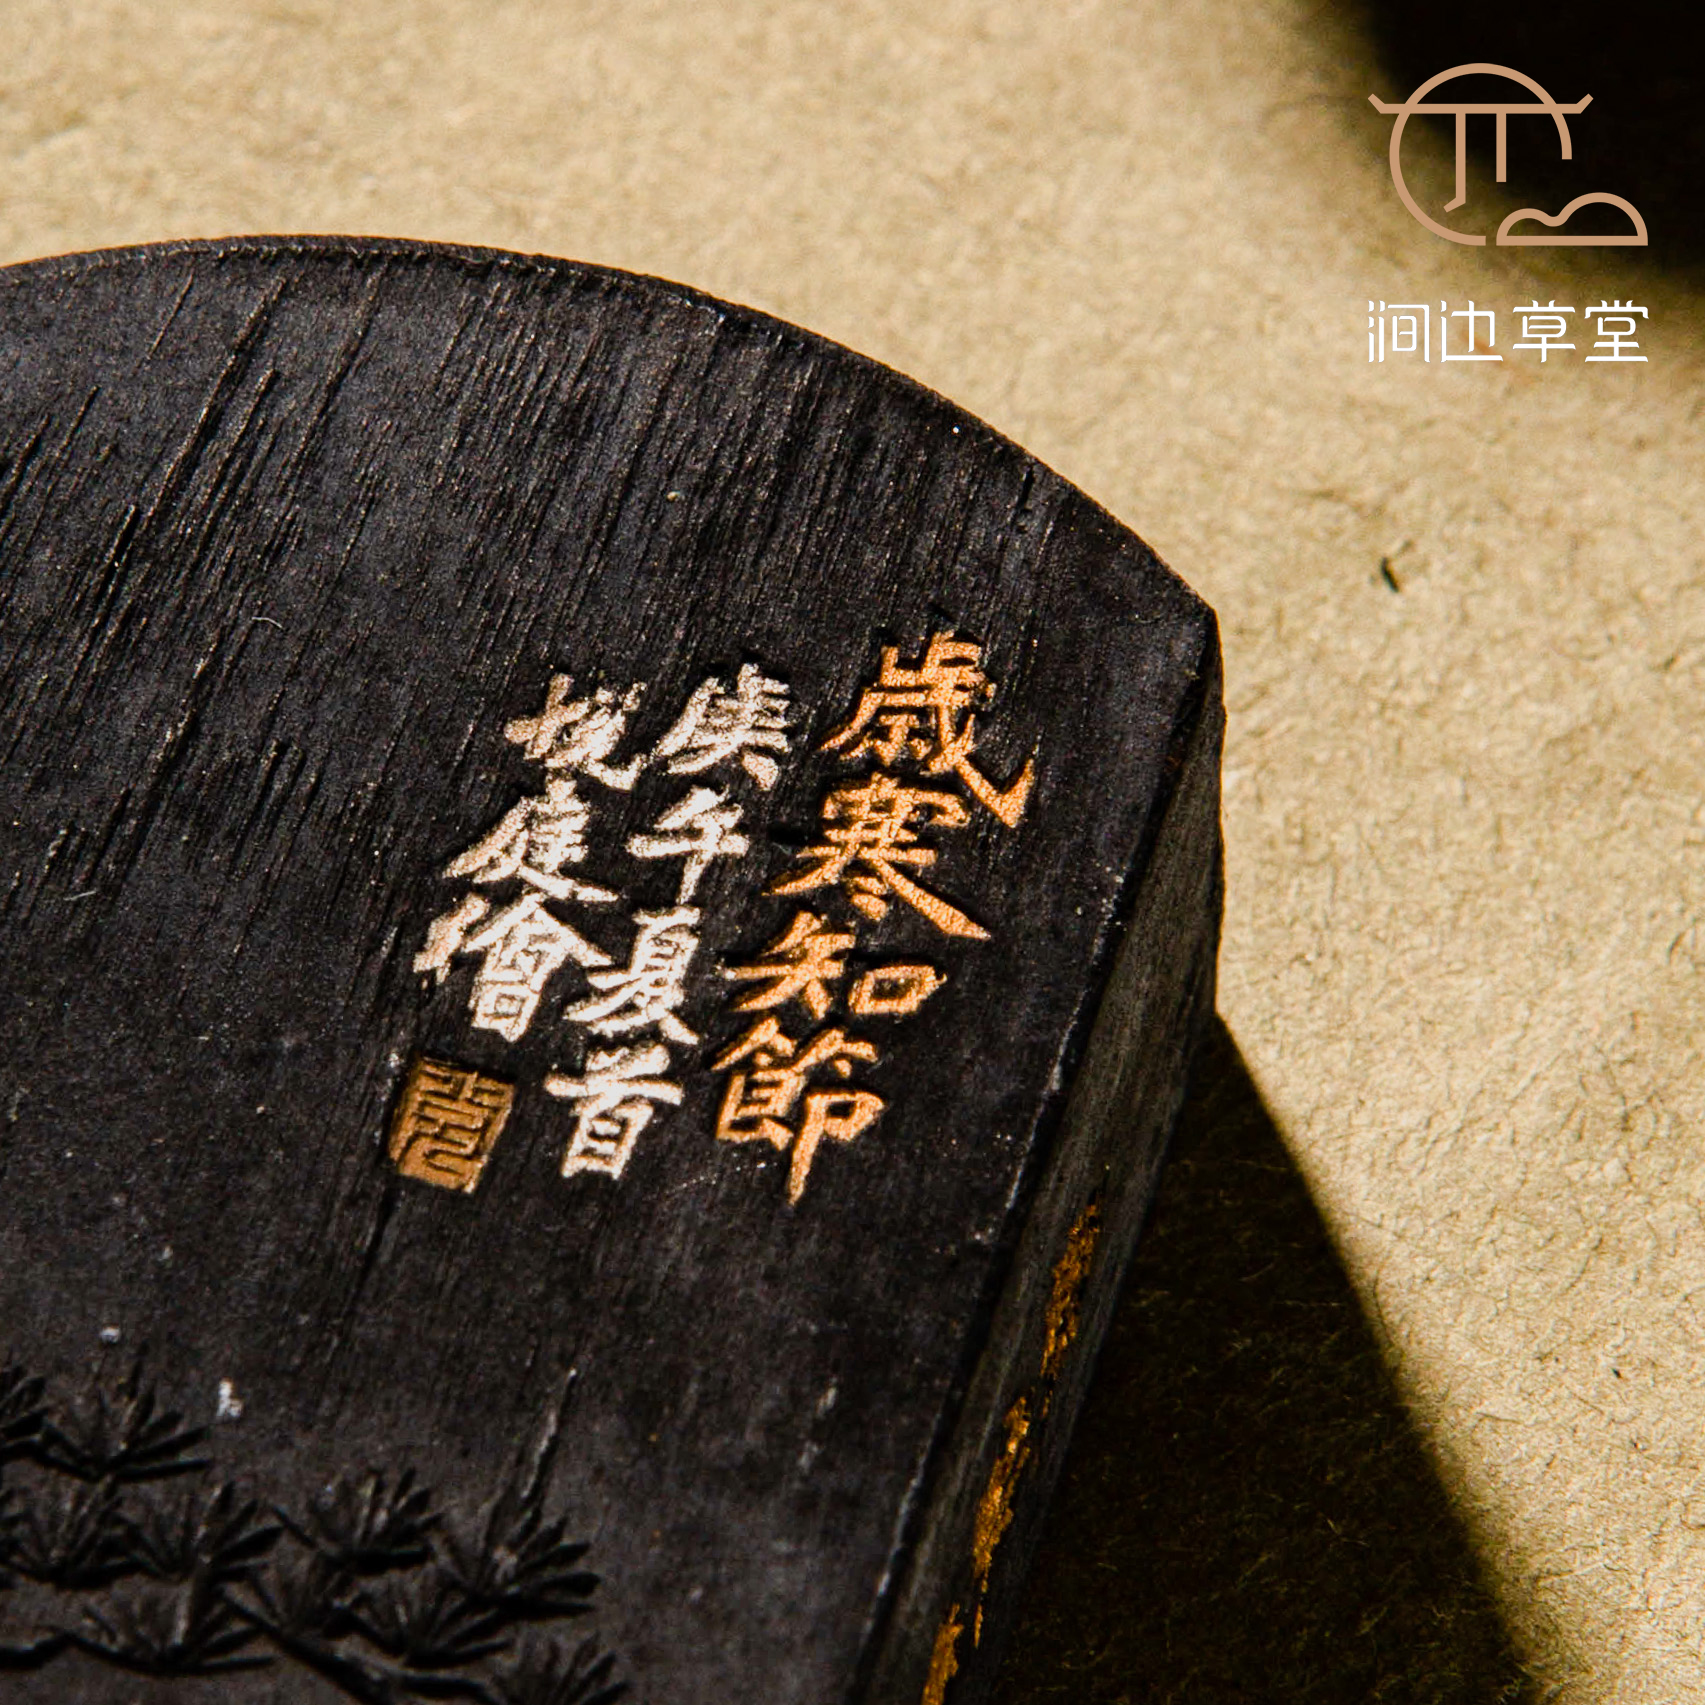 涧边草堂
歲寒知節
庚午夏首
悅庭繪